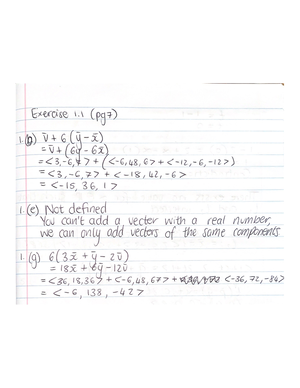 Exercise 1.1 (pg 7)
1. (b) v̄ + 6 (ȳ - x̄)
= v̄ + (6ȳ - 6x̄)
= <3, -6, 7> + (<-6, 48, 6> + <-12, -6, -12>)
= <3, -6, 7> + <-18, 42, -6>
= <-15, 36, 1>
1. (e) Not defined
You can't add a vecter with a real number,
we can only add vectors of the same components
1. (g) 6(3x̄ + ȳ - 2ū)
= 18x̄ + 6ȳ - 12ū
= <36, 18, 36> + <-6, 48, 6> + <-36, 72, -84>
= <-6, 138, -42>